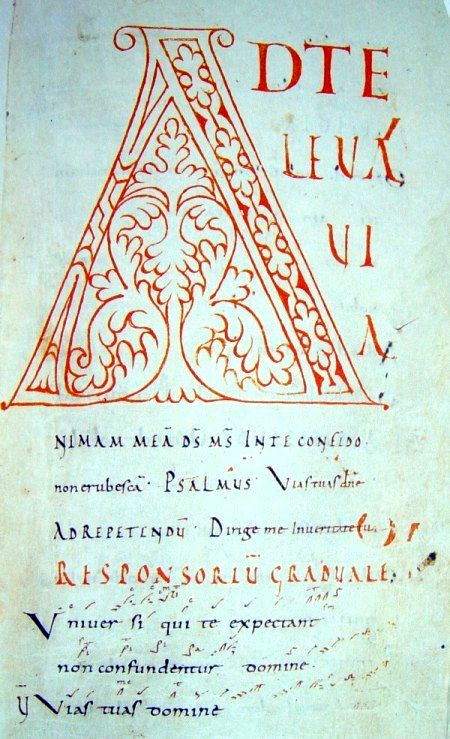 AD TE
LEVA
VI
A
NIMAM MEĀ D̄S M̄S IN TE CONFIDO·
non erubescā· PSALMUS Vias tuas dn̄e
AD REPETENDŪ· Dirige me in veritate tu
RESPONSORIŪ GRADUALE
Univer si qui te expectant
non confundentur domine·
Ṽ Vias tuas domine